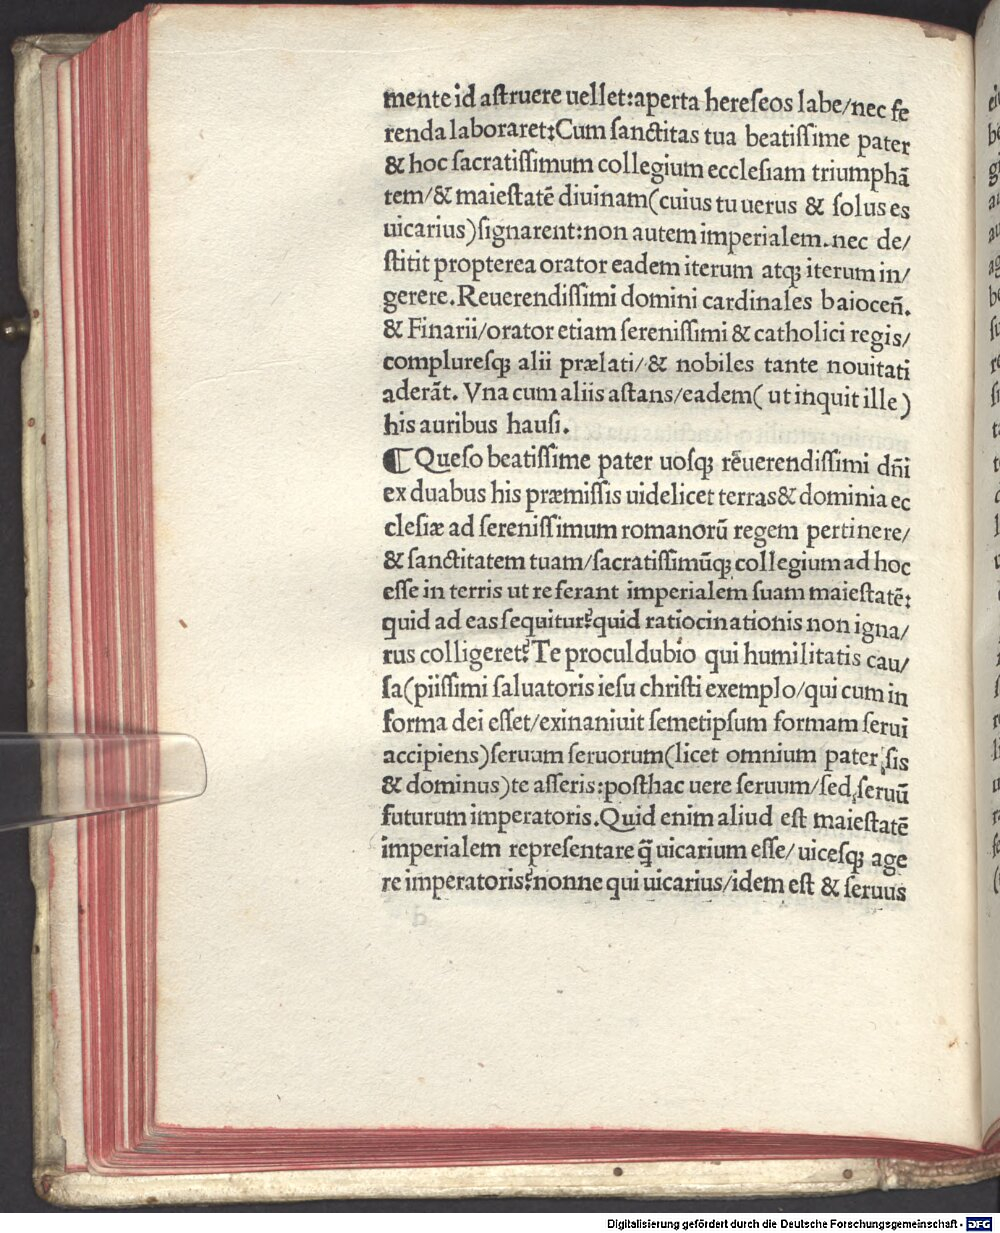 mente id aſtruere uellet:aperta hereſeos labe/nec fe
renda laboraret:Cum ſanctitas tua beatiſſime pater
& hoc ſacratiſſimum collegium eccleſiam triumphã
tem/& maieſtatē diuinam(cuius tu uerus & ſolus es
uicarius)ſignarent:non autem imperialem.nec de/
ſtitit propterea orator eadem iterum atqꝫ iterum in/
gerere.Reuerendiſſimi domini cardinales baioceñ.
& Finarii/orator etiam ſereniſſimi & catholici regis/
compluresqꝫ alii prælati/& nobiles tante nouitati
aderãt. Vna cum aliis aſtans/eadem( ut inquit ille)
his auribus hauſi.
¶ Queſo beatiſſime pater uoſqꝫ rēuerendiſſimi dñi
ex duabus his præmiſſis uidelicet terras& dominia ec
cleſiæ ad ſereniſſimum romanorũ regem pertinere/
& ſanctitatem tuam/ſacratiſſimũqꝫ collegium ad hoc
eſſe in terris ut referant imperialem ſuam maieſtatē:
quid ad eas ſequitur?quid ratiocinationis non igna/
rus colligeret?Te proculdubio qui humilitatis cau/
ſa(piiſſimi ſaluatoris ieſu chriſti exemplo/qui cum in
forma dei eſſet/exinaniuit ſemetipſum formam ſerui
accipiens)ſeruum ſeruorum(licet omnium pater ſis
& dominus)te aſſeris:poſthac uere ſeruum/ſed ſeruũ
futurum imperatoris.Quid enim aliud eſt maieſtatē
imperialem repreſentare q̃ uicarium eſſe/uiceſqꝫ age
re imperatoris?nonne qui uicarius/idem eſt & ſeruus
Digitalisierung gefördert durch die Deutsche Forschungsgemeinschaft - DFG